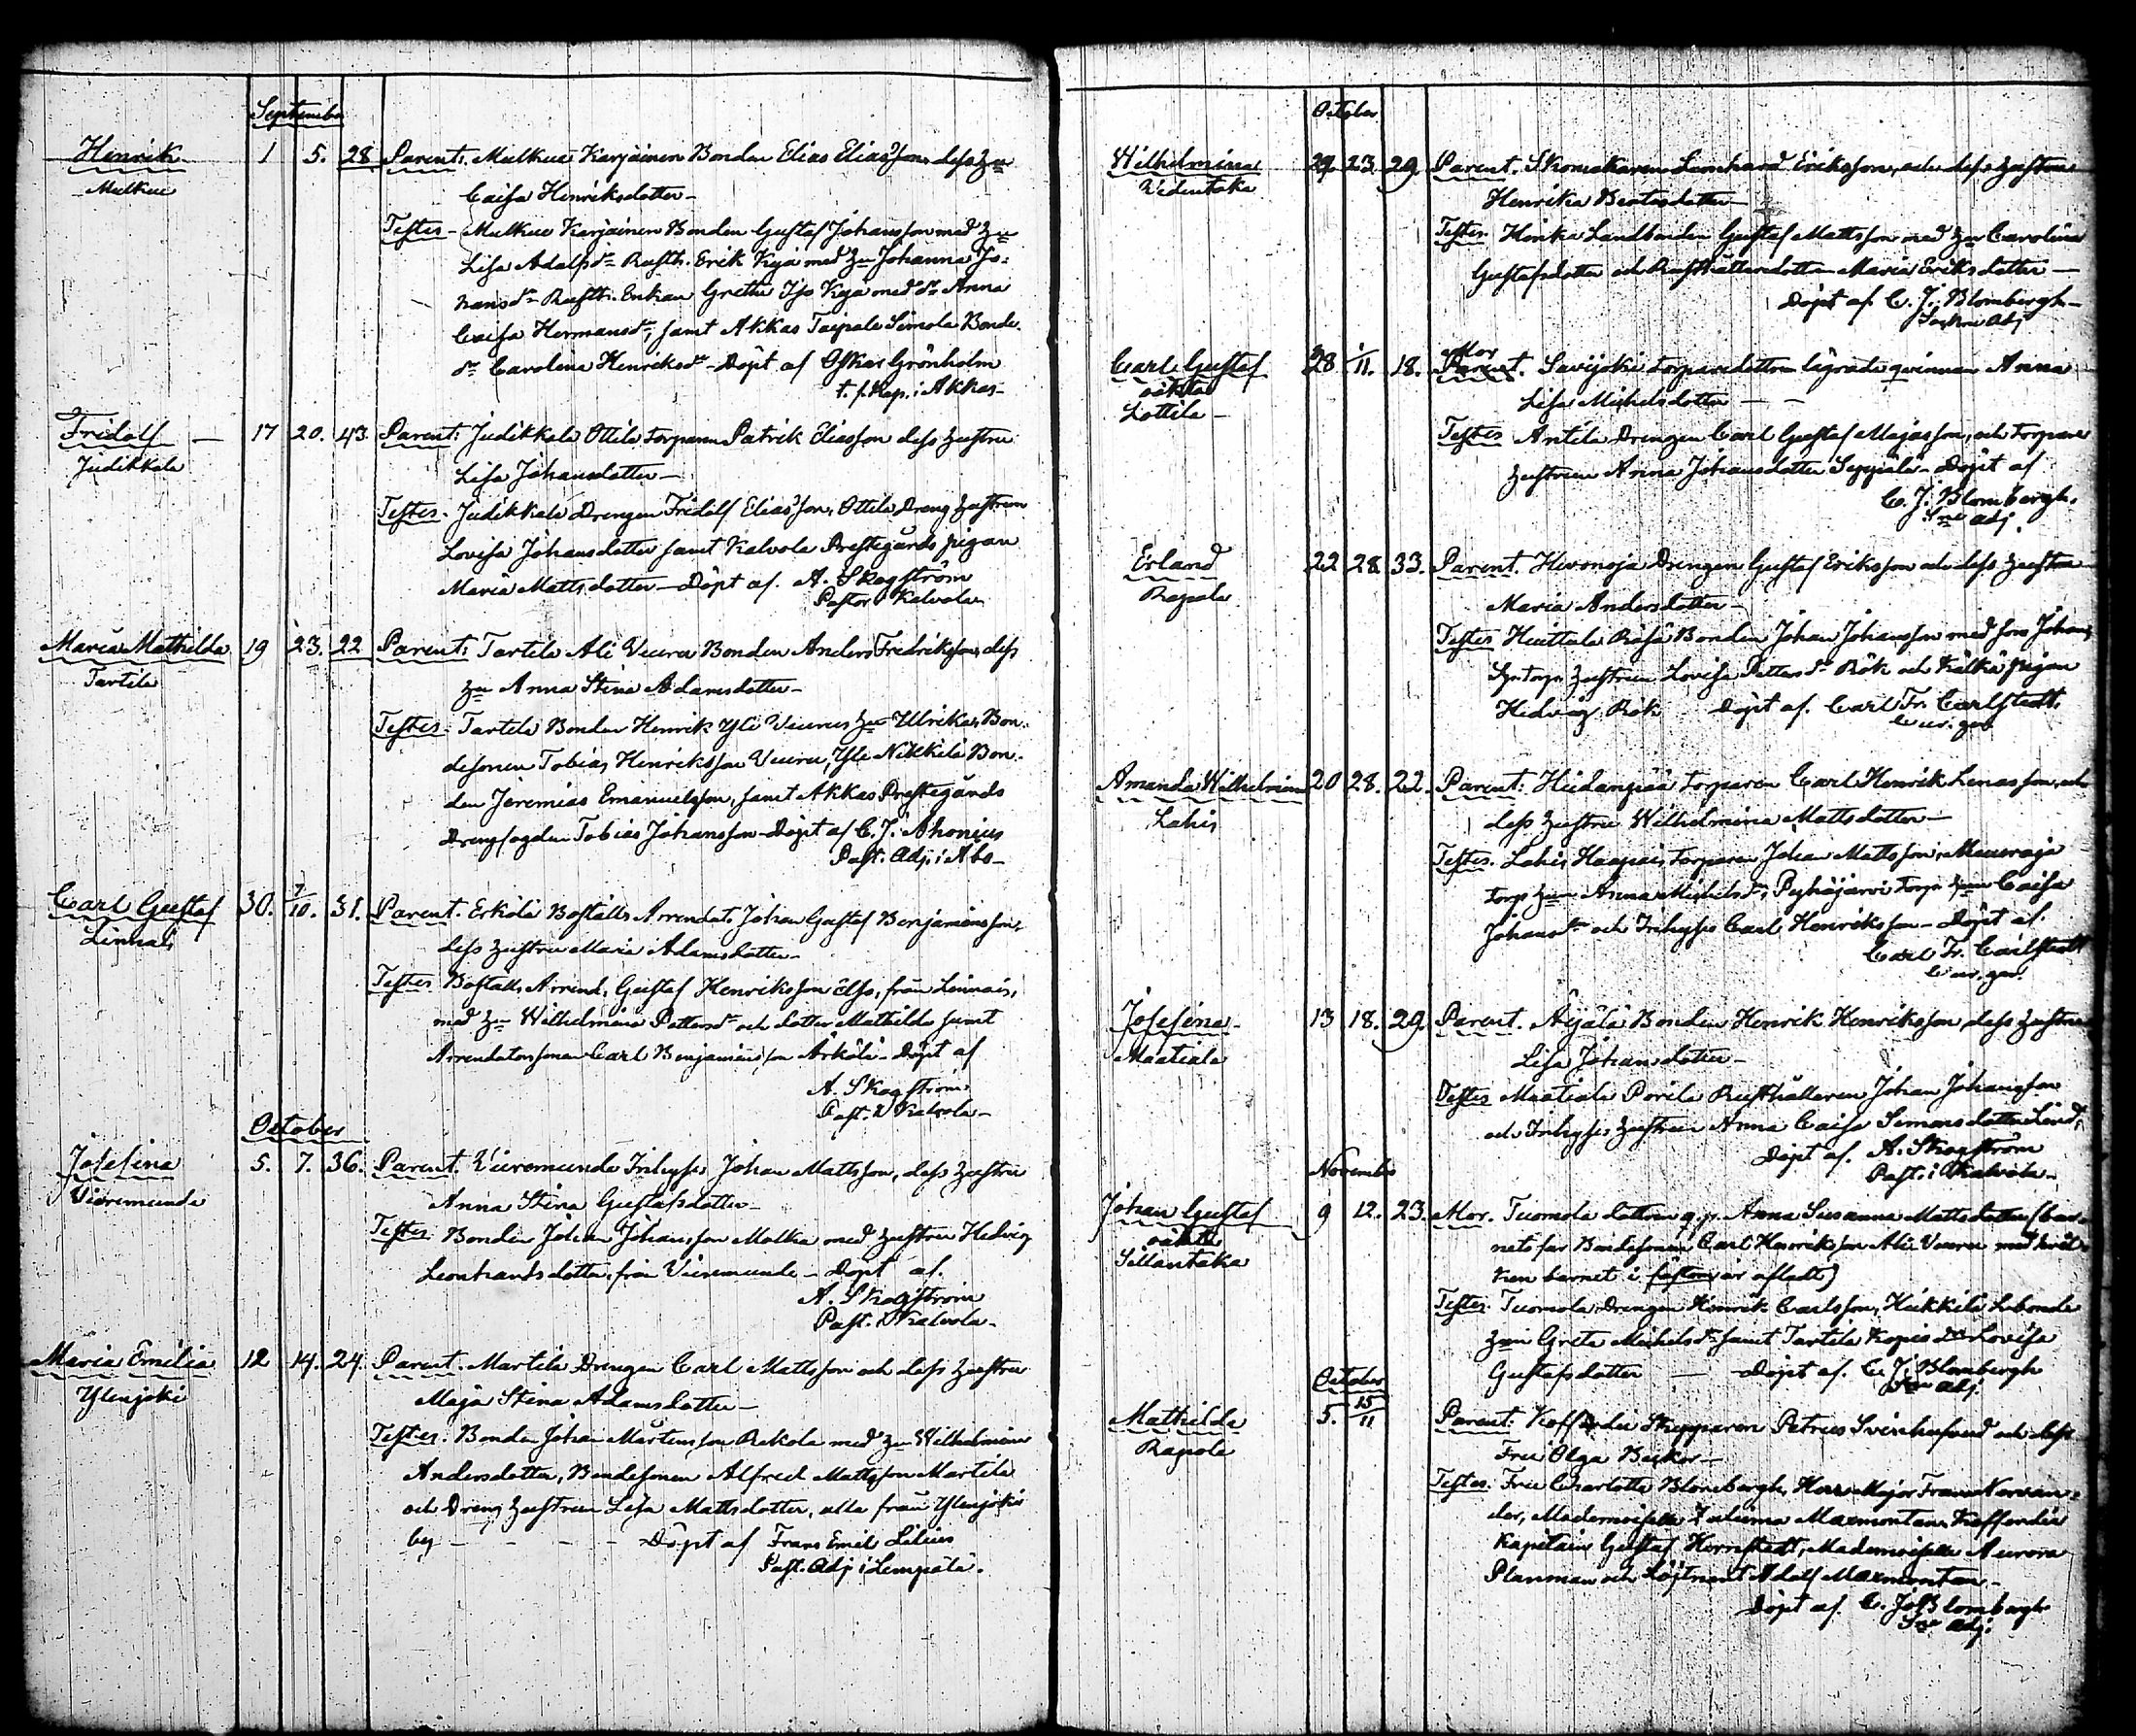 September
Henrik 1 5. 28 Parent: Mulkua Karjainen Bonden Elias Eliasson, dess Hu
Mulkua
Caisa Henriksdotter –
Testes – Mulkua Karjainen Bonden Gustaf Johansson med Hu
Lisa Adolfsdr Rusth. Erik Kyä med Hu Johanna Jo-
hansdr Rusth. Enkan Greta Iso Kyä med dr Anna
Caisa Hermansdr, samt Akkas Taipale Simola Bonde
dr Carolina Henriksdr – Döpt af Oskar Grönholm
t.f. Kap. i Akkas –
Fridolf – 17 20. 43 Parent: Judikkala Ottila torparen Patrik Eliasson dess hustru
Judikkala
Lisa Johansdotter –
Testes – Judikkala Drengen Fridolf Eliasson, Ottila Dreng hustrun
Lovisa Johansdotter samt Kalvola Prestegårds pigan
Maria Mattsdotter – Döpt af A. Skogström
Pastor i Kalvola
Maria Mathilda 19 23. 22 Parent: Tartila Ali Vuura Bonden Anders Fredriksson, dess
Tartila
Hu Anna Stina Adamsdotter –
Testes – Tartila Bonden Henrik Yli Vuuras Hu Ulrika, Bon-
desonen Tobias Henriksson Vuura, Yli Nikkilä Bon-
den Jeremias Emanuelsson, samt Akkas Prestegårds
Drengfogden Tobias Johansson – Döpt af C. J. Ahonius
Past. Adj. i Åbo –
Carl Gustaf 30. 7/10. 31. Parent. Erkola Boställs Arrendat. Johan Gustaf Benjaminsson,
Linnais
dess hustru Maria Adamsdotter –
Testes Boställs Arrend. Gustaf Henriksson från Linnais,
med Hu Wilhelmina Pettersdr och dotter Mathilda samt
Arrendatorssonen Carl Benjaminsson Ärkölä – Döpt af
A. Skogström
Past. i Kalvola –
October
Josefina 5. 7. 36. Parent. Vuoromunda Inhyses Johan Mattsson, dess hustru
Anna Stina Gustafsdotter –
Testes. Bonden Johan Johansson med hustru Hedvig
Leonhardsdotter, från – Döpt af.
A. Skogström
Past. i Kalvola –
Maria Emilia 12 14. 24. Parent. Martila Drengen Carl Mattsson och dess hustru
Ylenjoki
Maja Stina Adamsdotter –
Testes: Bonden Johan Mårtensson Rekola med Hu Wilhelmina
Andersdotter, Bondesonen Alfred Mattsson Martila
och Dreng hustrun Lisa Mattsdotter, alla från Ylenjoki
by – – – – Döpt af Frans Emil Lilius
Past. Adj i Lempäälä.
October
Wilhelmina 29. 23. 29. Parent. Skomakaren Leonhard Eriksson, och dess hustru
Uitentaka
Henrika Beatasdotter –
Testes. Landbonden Gustaf Mattsson med Hu Carolina
Gustafsdotter och Rusthållaredottr. Maria Eriksdotter –
Döpt af C. J. Blombergh –
Sockne Adj
Carl Gustaf 28 1/11. 18. Mor Parent. Savijoki torparedottren lägrade qvinnan Anna
oäkta
Lottila –
Lisa Michelsdotter – –
Testes Antila Drengen Carl Gustaf Majasson, och torpare
hustrun Anna Johansdotter Seppälä – Döpt af
C. J. Blombergh.
Sne adj.
Erland 22 28. 33. Parent. Drengen Gustaf Eriksson och dess hustru
Rapola
Maria Andersdotter –
Testes Huittula Bonden Johan Johansson med son Johan,
hustrun Lovisa Pettersdr Rök och pigan
Hedvig Rök Döpt af. Carl Fr. Carlstedt
Amanda Wilhelmina 20 28. 22. Parent: Hiidanpää torparen Carl Henrik Lenasson, och
Lahis
dess hustru Wilhelmina Mattsdotter –
Testes. Lahis torparen Johan Mattsson,
torp. Hun Anna Michelsdr, Pyhäjärvi torp. Hun Caisa
Johansdr och Inhyses Carl Henriksson – Döpt af.
Carl Fr. Carlstedt
Josefina – 13 18. 29. Parent. Äijälä Bonden Henrik Henriksson, dess hustru
Maatiala
Lisa Johansdotter –
Testes Maatiala Porila Rusthållaren Johan Johansson
och Inhyses hustrun Anna Caisa Simonsdotter Lind,
Döpt af. A. Skogström
Past. i Kalvola –
November
Johan Gustaf 9 12. 23. Mor. Tuomola dottren q. p. Anna Susanna Mattsdotter (bar-
oäkta
Sillantaka
nets far Bondesonen Carl Henriksson Ali Vuura med hvil-
ken barnet i är afladt)
Testes. Tuomola Drengen Henrik Carlsson, Hukkila Lbonde
Hun Greta Michelsdr samt Tartila dr Lovisa
Gustafsdotter – Döpt af. C. J. Blombergh
Sne Adj.
October
Mathilda 5. 15/11 Parent: Koffardie Skepparen Petrus Svinhufvud och dess
Rapola
Fru Olga Becker –
Testes. Fru Charlotta Blombergh, Herr Major Frans Nervan-
der, Mademoiselle Marmontan, Koffardie
Kapitain Gustaf Hornstedt, Mademoiselle Aurora
Planman och Löjtnant Adolf Marmontan –
Döpt af. C. J. Blombergh
Sne Adj.